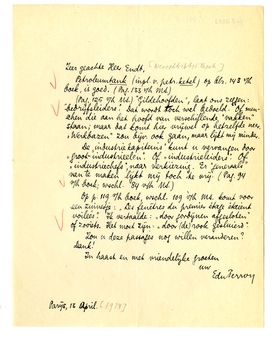 Zeer geachte Heer Endt,
Petroleumtank (inpl. v. petr. ketel) op blz. 143 v/h
boek, is goed. (Pag. 133 v/h Ms)
(Pag. 125 v/h Ms) "Gildehoofden", laat ons zeggen:
"bedrijfsleiders". Dat wordt toch wel bedoeld. Of men-
schen die aan het hoofd van verschillende "vakken"
staan, maar dat komt hier vrijwel op hetzelfde neer.
"Werkbazen" zou dus ook gaan, maar lijkt mij minder.
De "industriekapiteins" kunt u vervangen door
"groot-industrieelen". Of "industrieleiders". Of
"industriechefs", naar verkiezing. Er "generaals"
van te maken lijkt mij toch de vrij. (Pag. 94
v/h boek; wschl. 84 v/h Ms)
Op p. 119 v/h boek, wschl. 109 v/h Ms. komt voor
een zinnetje: "De fenêtres du premier étage étaient
voilées". Ik vertaalde: "door gordijnen afgesloten"
of zoiets. Het moet zijn: "door (de) rook gesluierd".
Zou u deze passages nog willen veranderen?
Dank!
In haast en met vriendelijke groeten
uw
EduPerron
Parijs, 12 April